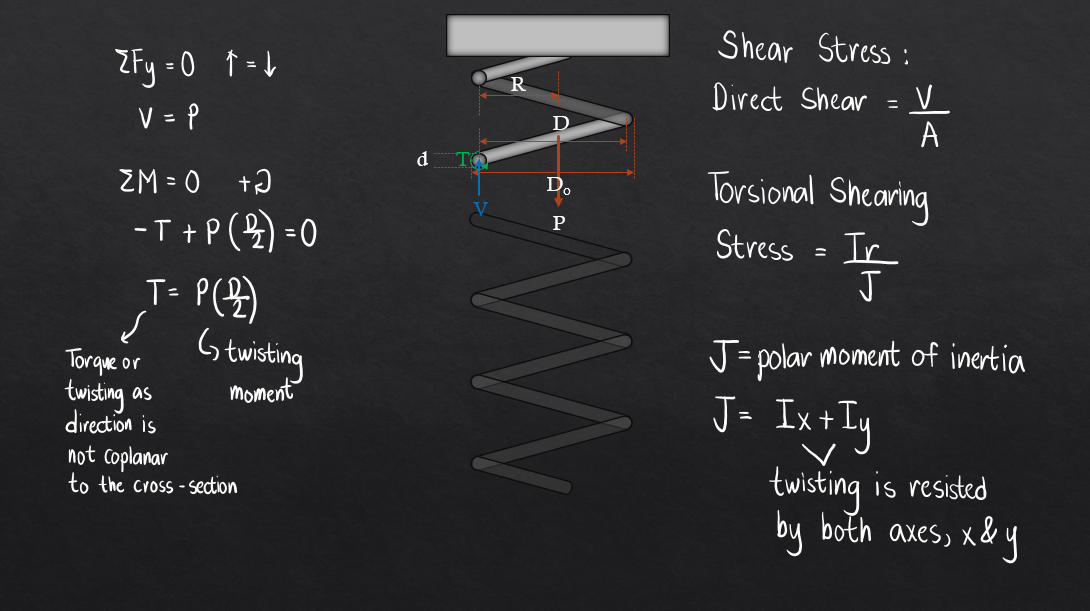 ΣFy = 0 ↑ = ↓
V = P
ΣM = 0 +↻
- T + P (D/2) = 0
T = P(D/2)
↳ twisting
moment
Torque or
twisting as
direction is
not coplanar
to the cross-section
R
D
d
T
Do
V
P
Shear Stress :
Direct Shear = V/A
Torsional Shearing
Stress = Tr/J
J = polar moment of inertia
J = Ix + Iy
twisting is resisted
by both axes, x & y